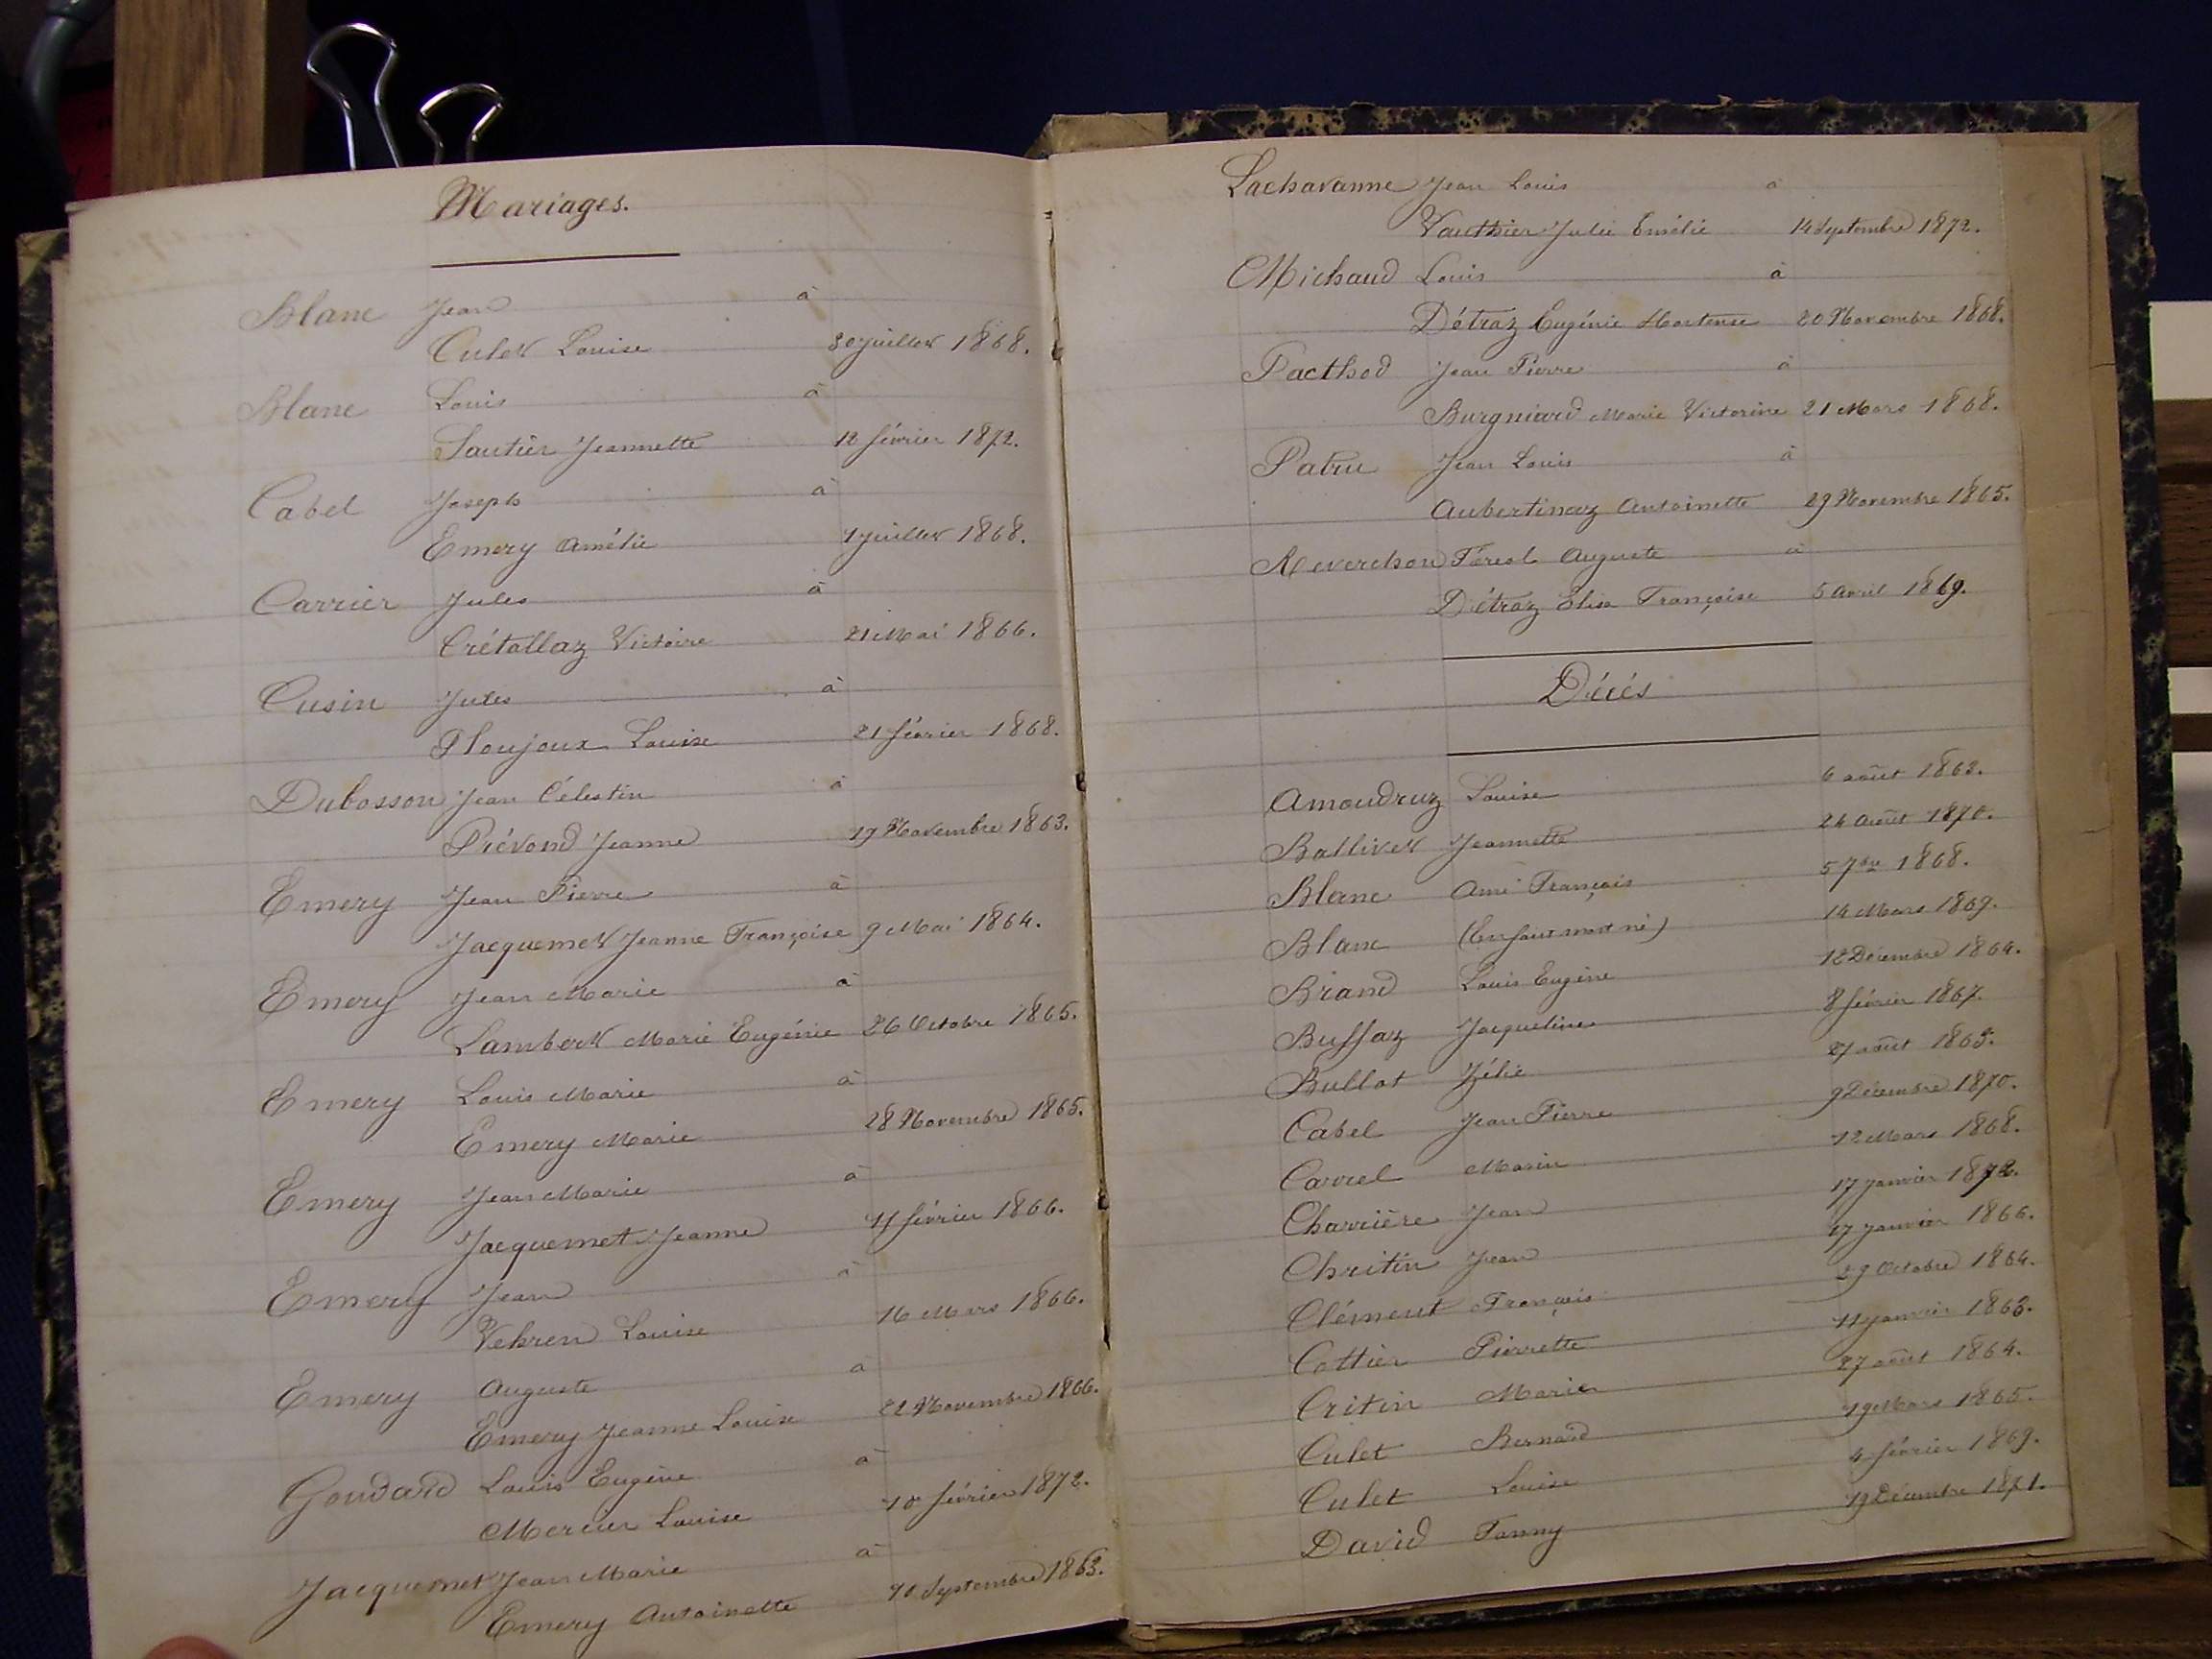 Mariages.
Blanc Jean à
Culet Louise 30 juillet 1868.
Blanc Louis à
Sautier Jeannette 12 février 1872.
Cabel Joseph à
Emery Amélie 1 juillet 1868.
Carrier Jules à
Crétallaz Victoire 21 Mai 1866.
Cusin Jules à
Ploujoux Louise 21 février 1868.
Dubosson Jean Célestin à
Prévond Jeanne 19 Novembre 1863.
Emery Jean Pierre à
Jacquemet Jeanne Françoise 9 Mai 1864.
Emery Jean Marie à
Lambert Marie Eugénie 26 Octobre 1865.
Emery Louis Marie à
Emery Marie 28 Novembre 1865.
Emery Jean Marie à
Jacquemet Jeanne février 1866.
Emery Jean à
Vehren Louise 16 Mars 1866.
Emery Auguste à
Emery Jeanne Louise 22 Novembre 1866.
Goudard Louis Eugène à
Mercier Louise 10 février 1872.
Jacquemet Jean Marie à
Emery Antoinette 10 Septembre 1863.
Lachavanne Jean Louis à
Vauthier Julie Emélie 14 Septembre 1872.
Michaud Louis à
Détraz Eugénie Hortense 20 Novembre 1868.
Pacthod Jean Pierre à
Burgniard Marie Victorine 21 Mars 1868.
Patru Jean Louis à
Aubertinaz Antoinette 29 Novembre 1865.
Reverchon Féréol Auguste à
Détraz Elisa Françoise 5 Avril 1869.
Décés
Amoudruz Louise 6 août 1863.
Ballivet Jeannette 24 Août 1870.
Blanc Amé François 5 7bre 1868.
Blanc (Enfant mort né) 14 Mars 1869.
Briand Louis Eugène 12 Décembre 1864.
Buffaz Jacqueline 8 février 1867.
Bullat Zélie 27 août 1865.
Cabel Jean Pierre 9 Décembre 1870.
Carrel Marin 12 Mars 1868.
Charrière Jean 17 janvier 1872.
Chritin Jean 17 janvier 1866.
Clément François 29 Octobre 1864.
Cottier Pierrette 11 janvier 1863.
Critin Marie 27 août 1864.
Culet Bernard 19 Mars 1865.
Culet Louise 4 février 1869.
David Fanny 19 Décembre 1871.